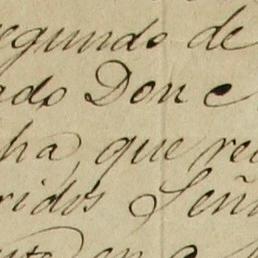 segundo de
ado Don e
ha, que re
ridos Seño
en